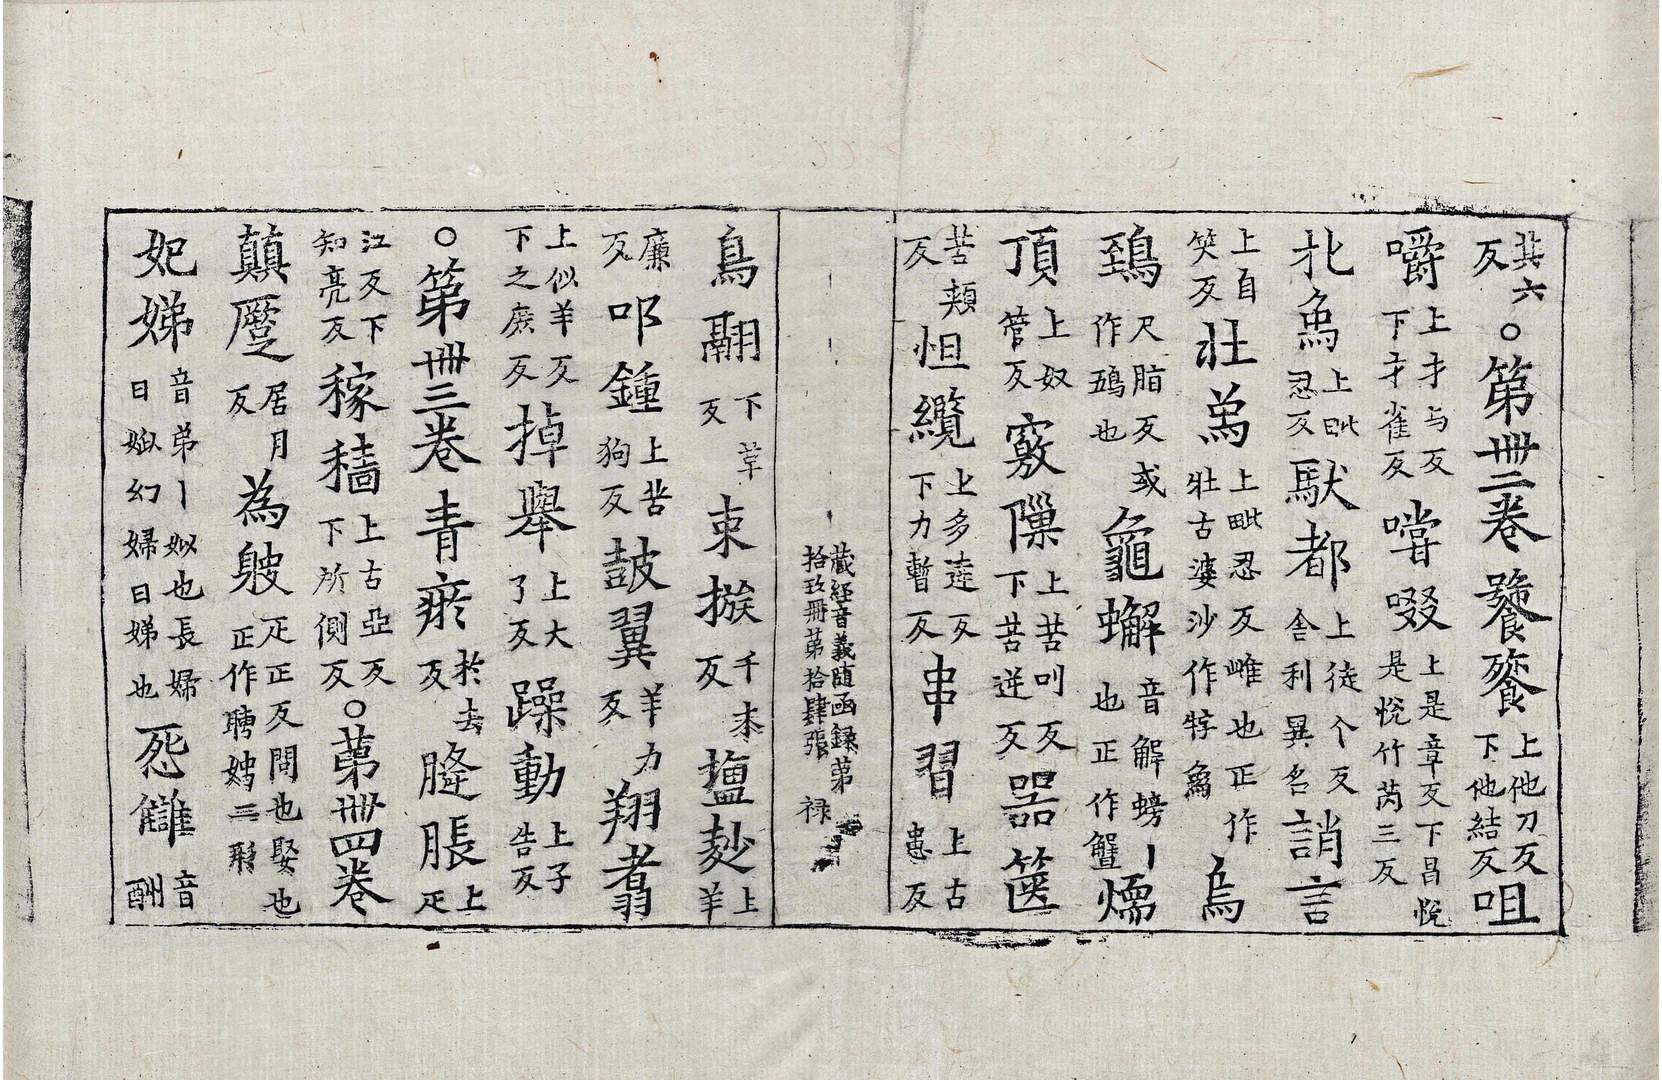 其六反○第卌二卷饕餮上他刀反下他結反咀
嚼上才与反下才雀反嚐啜上是章反下昌悅是悅竹芮三反
北𩵋上毗忍反馱都上徒个反舍利異名誚言
上自笑反壮為上毗忍反雌也正作壮古婆沙作牸𩵋烏
鵄尺脂反或作鵄也龜蠏音解螃丨也正作蟹燸
頂上奴管反竅隟上苦叫反下苦逆反器篋
苦頰反怛纜上多達反下力暫反串習上古患反
藏經音義随函録第拾玖冊第拾肆張 禄
鳥翮下革反束擬千木反塩麨上羊
廉反叩鍾上苦狗反鼓翼羊力反翔翥
上似羊反下之庶反掉舉上大了反躁動上子告反
○第卌三卷青瘀於去反胮脹上疋
江反下知亮反稼穡上古亞反下所側反○第卌四卷
顛蹷居月反為躼疋正反問也娶也正作聘娉三形
妃娣音弟丨姒也長婦曰姒幼婦曰娣也怨讎音酬